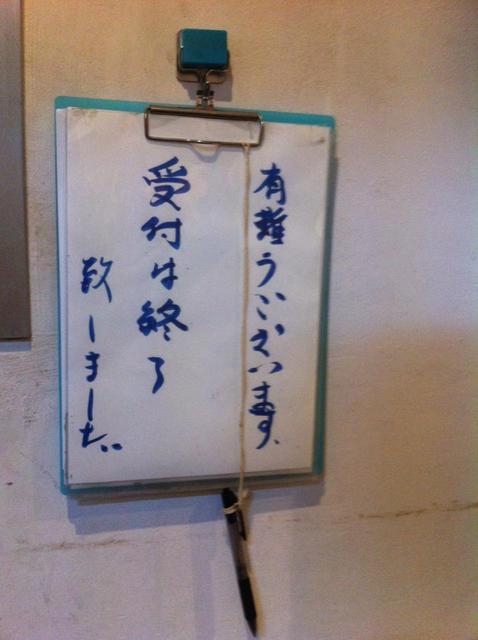 有難うございます、
受付は終了
致しました。